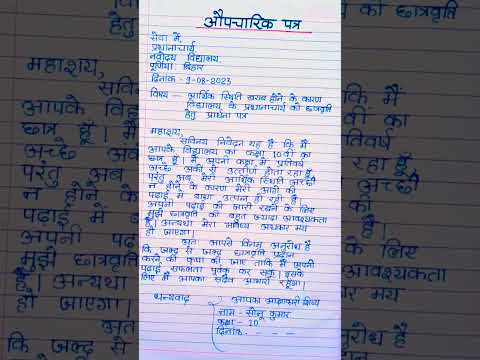 औपचारिक पत्र
सेवा में,
प्रधानाचार्य
नवोदय विद्यालय
पूर्णिया बिहार
दिनांक - 1-08-2023
विषय - आर्थिक स्थिति खराब होने के कारण
विद्यालय के प्रधानाचार्य को छात्रवृत्ति
हेतु प्रार्थना पत्र
महाशय,
सविनय निवेदन यह है कि मैं
आपके विद्यालय का कक्षा 10वीं का
छात्र हूँ। मैं अपनी कक्षा में प्रतिवर्ष
अच्छे अंकों से उत्तीर्ण होता रहा हूँ
परंतु अब मेरी आर्थिक स्थिति अच्छी
न होने के कारण मेरी आगे की
पढ़ाई में बाधा उत्पन्न हो रही है।
अपनी पढ़ाई को जारी रखने के लिए
मुझे छात्रवृत्ति की बहुत ज्यादा आवश्यकता
है। अन्यथा मेरा भविष्य अंधकार मय
हो जाएगा।
अतः आपसे विनम्र अनुरोध है
कि जल्द से जल्द छात्रवृत्ति प्रदान
करने की कृपा की जाए ताकि मैं अपनी
पढ़ाई सफलता पूर्वक कर सकूं। इसके
लिए मैं आपका सदैव आभारी रहूंगा।
धन्यवाद
आपका आज्ञाकारी शिष्य
नाम - सोनू कुमार
कक्षा - 10
दिनांक - - - -